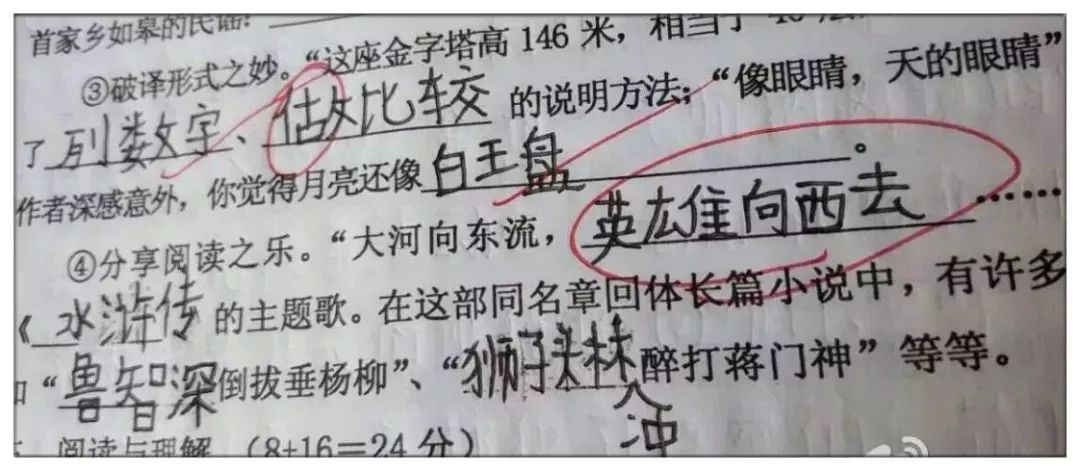 首家乡如皋的民谣:
③破译形式之妙。“这座金字塔高146米,相当于
了列数字、估女比较的说明方法;“像眼睛,天的眼睛”
作者深感意外,你觉得月亮还像白王盘。
④分享阅读之乐。“大河向东流,英雄向西去……
《水浒传的主题歌。在这部同名章回体长篇小说中,有许多
“鲁智深倒拔垂杨柳”、“狮子头林冲醉打蒋门神”等等。
阅读与理解(8+16=24分)